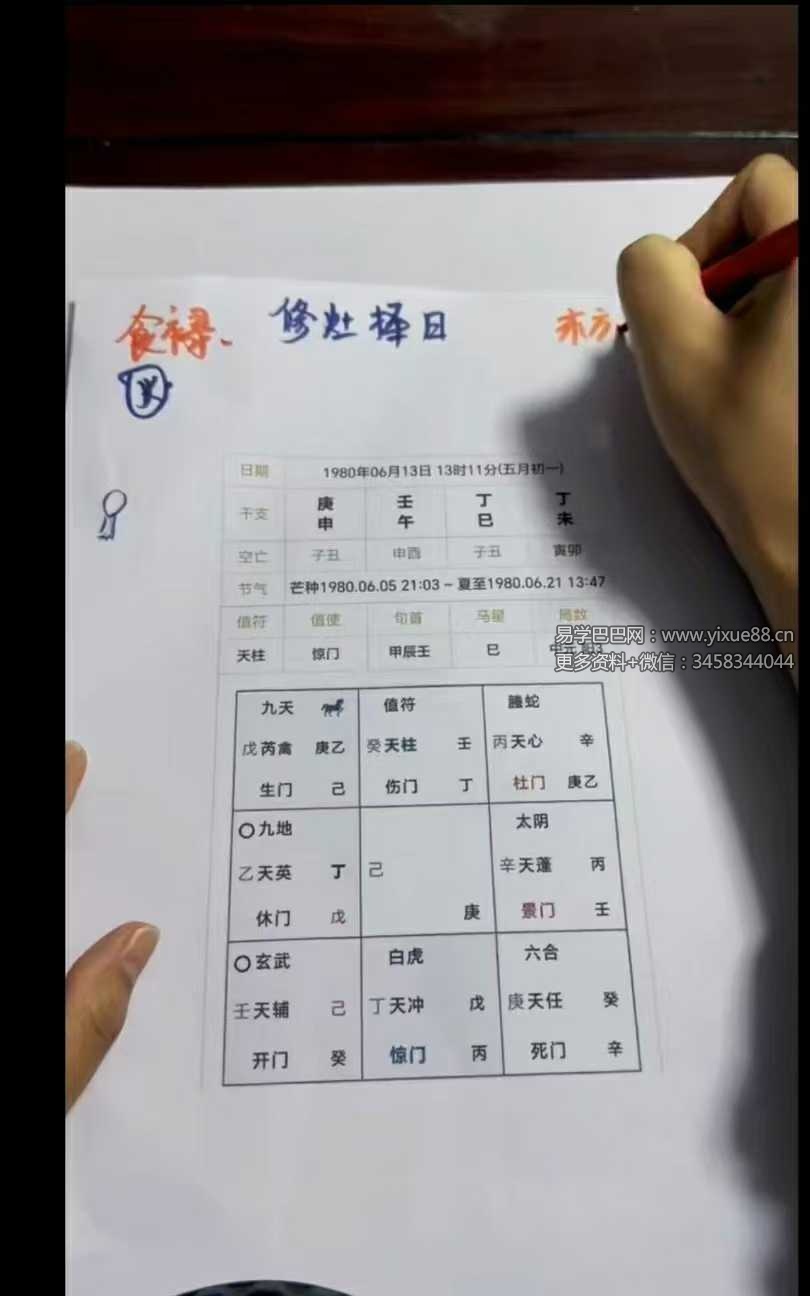 食禄、 修灶择日 东方
日期 1980年06月13日 13时11分(五月初一)
干支 庚申 壬午 丁巳 丁未
空亡 子丑 申酉 子丑 寅卯
节气 芒种1980.06.05 21:03 – 夏至1980.06.21 13:47
值符 值使 旬首 马星 局数
易学巴巴网：www.yixue88.cn
天柱 惊门 甲辰壬 巳 中元 阳3
更多资料+微信：3458344044
九天 值符 螣蛇
戊 芮禽 庚乙 癸 天柱 壬 丙 天心 辛
生门 己 伤门 丁 杜门 庚乙
九地 太阴
乙 天英 丁 己 辛 天蓬 丙
休门 戊 庚 景门 壬
玄武 白虎 六合
壬 天辅 己 丁 天冲 戊 庚 天任 癸
开门 癸 惊门 丙 死门 辛